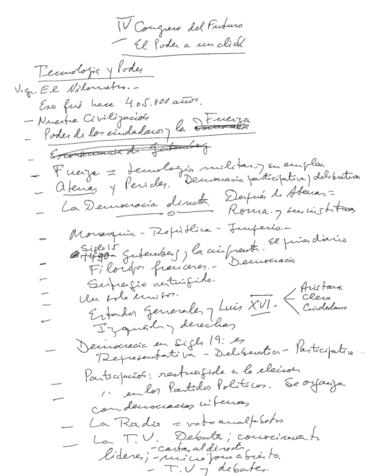 IV Congreso del Futuro
- El Poder a un click
Tecnología y Poder
Vig. El Nilometro.-
Eso fué hace 4 o 5.000 años.
- Nuestra Civilización
Fuerza
Poder de los ciudadanos y la
- Economía de Gutenberg
- Fuerza = tecnología militar y su empleo
- Atenas y Pericles. Democracia participativa/deliberativa
- La Democracia directa. Después de Atenas =
Roma y sus instituc
- Monarquía - República - Imperio.-
Siglo 15
- 1490 Gutenberg y la imprenta. El primer diario
- Filósofos franceses.- Democracia
- Sufragio restringido.
- Un solo emisor.
- Estados Generales y Luis XVI. Aristocr
Clero
Ciudadanos
- Izquierda y derechas
- Democracia en Siglo 19: es
Representativa - Deliberativa - Participativa.-
- Participación: restringida a la elección
- " en los Partidos Políticos. Se organiza
con democracias internas
- La Radio = voto analfabetos
- La T.V. Debate; conocimiento
líderes; - carta al director
- micrófono abierto
- T.V y debates.